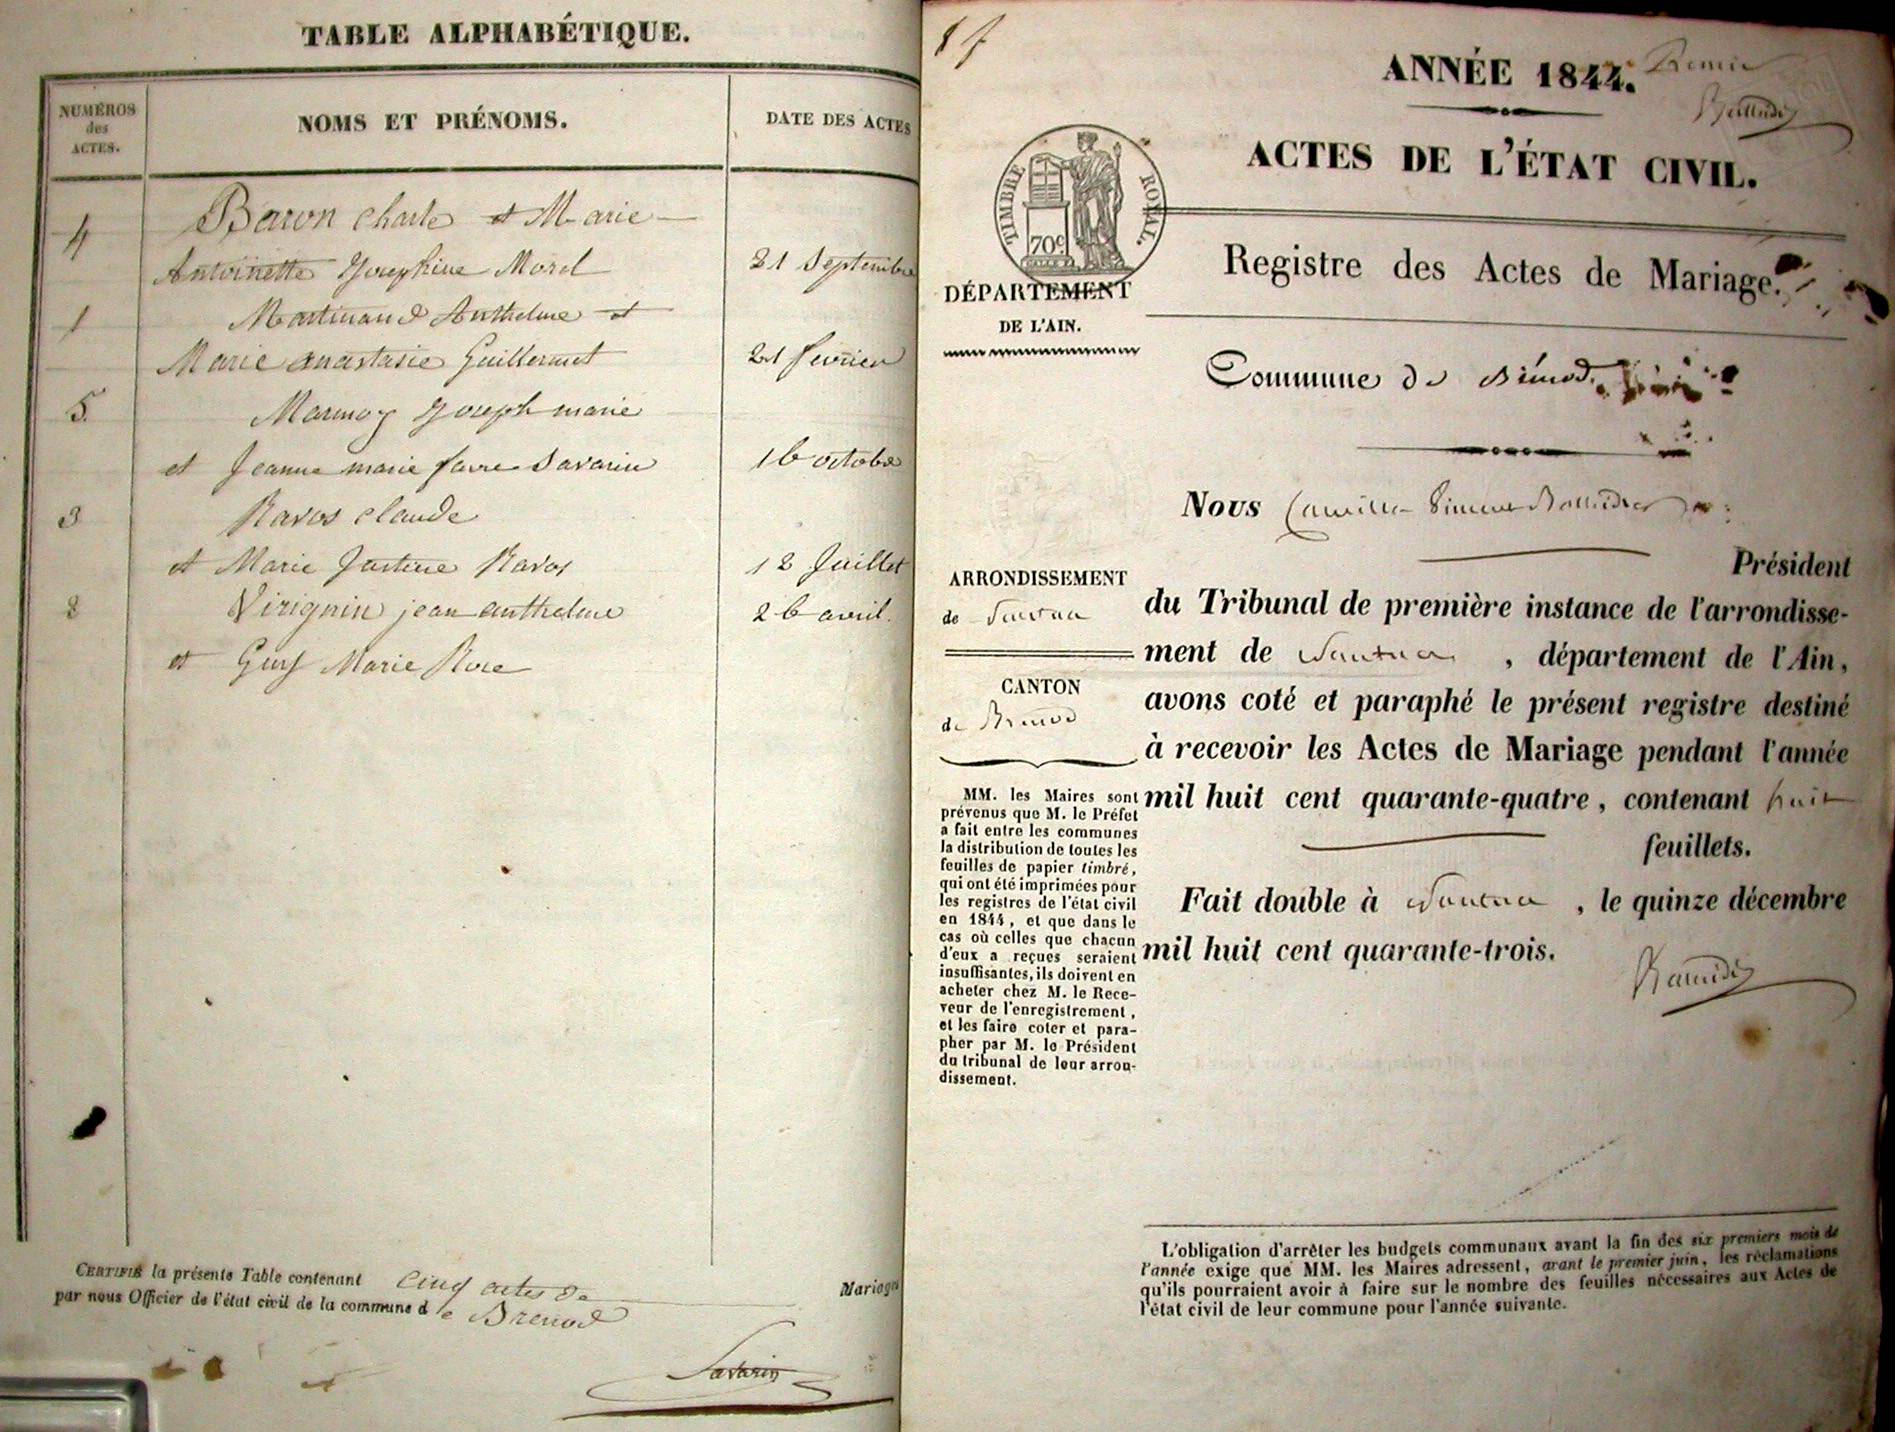 TABLE ALPHABÉTIQUE.
NUMÉROS
des
ACTES.
NOMS ET PRÉNOMS.
DATE DES ACTES
4
Baron Charle et Marie
Antoinette Josephine Morel
21 Septembre
1
Martinand Anthelme et
Marie anastasie Guillermet
21 fevrier
5
Marmoz Joseph marie
et Jeanne marie favre Savarin
16 octobre
3
Ravos claude
et Marie Justine Ravos
12 Juillet
2
Virignin jean anthelme
26 avril.
et Guy Marie Rose
CERTIFIÉ la présente Table contenant cinq actes de Mariages
par nous Officier de l'état civil de la commune de Brenod
Savarin
ANNÉE 1844.
ACTES DE L'ÉTAT CIVIL.
TIMBRE ROYAL.
70c
DÉPARTEMENT
DE L'AIN.
Registre des Actes de Mariage.
Commune de Brénod
Nous Camille
Président
ARRONDISSEMENT
de Nantua
CANTON
de Brenod
du Tribunal de première instance de l'arrondisse-
ment de Nantua, département de l'Ain,
avons coté et paraphé le présent registre destiné
à recevoir les Actes de Mariage pendant l'année
mil huit cent quarante-quatre, contenant huit
feuillets.
Fait double à Nantua, le quinze décembre
mil huit cent quarante-trois.
MM. les Maires sont
prévenus que M. le Préfet
a fait entre les communes
la distribution de toutes les
feuilles de papier timbré,
qui ont été imprimées pour
les registres de l'état civil
en 1844, et que dans le
cas où celles que chacun
d'eux a reçues seraient
insuffisantes, ils doivent en
acheter chez M. le Rece-
veur de l'enregistrement,
et les faire coter et para-
pher par M. le Président
du tribunal de leur arron-
dissement.
L'obligation d'arrêter les budgets communaux avant la fin des six premiers mois de
l'année exige que MM. les Maires adressent, avant le premier juin, les réclamations
qu'ils pourraient avoir à faire sur le nombre des feuilles nécessaires aux Actes de
l'état civil de leur commune pour l'année suivante.